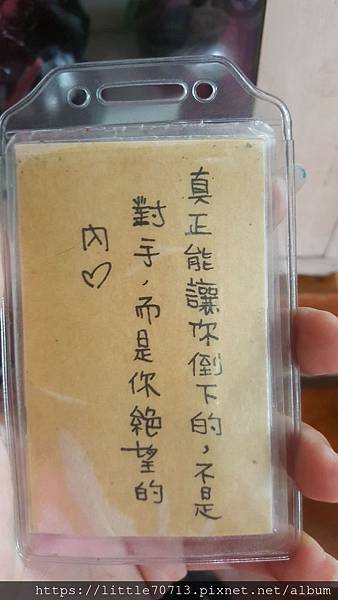 真正能讓你倒下的,不是
對手,而是你絕望的
內♡
https://little70713.pixnet.net/album